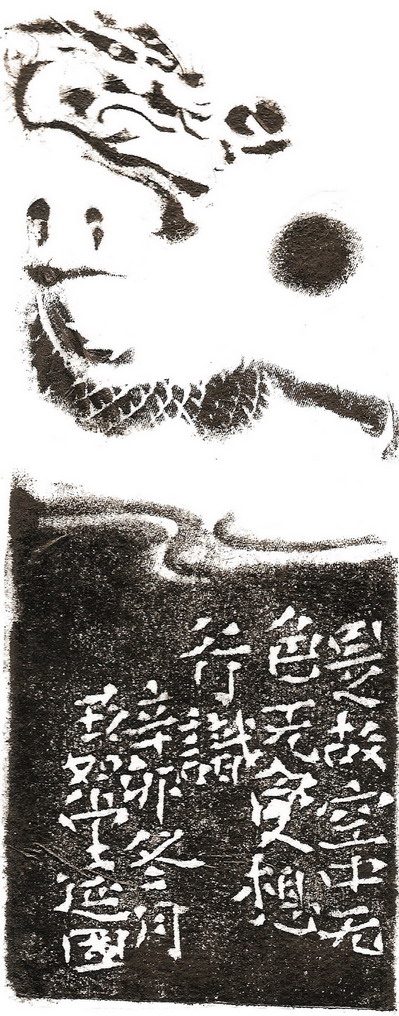 是故空中无
色无受想
行識
辛卯冬月
如堂延國